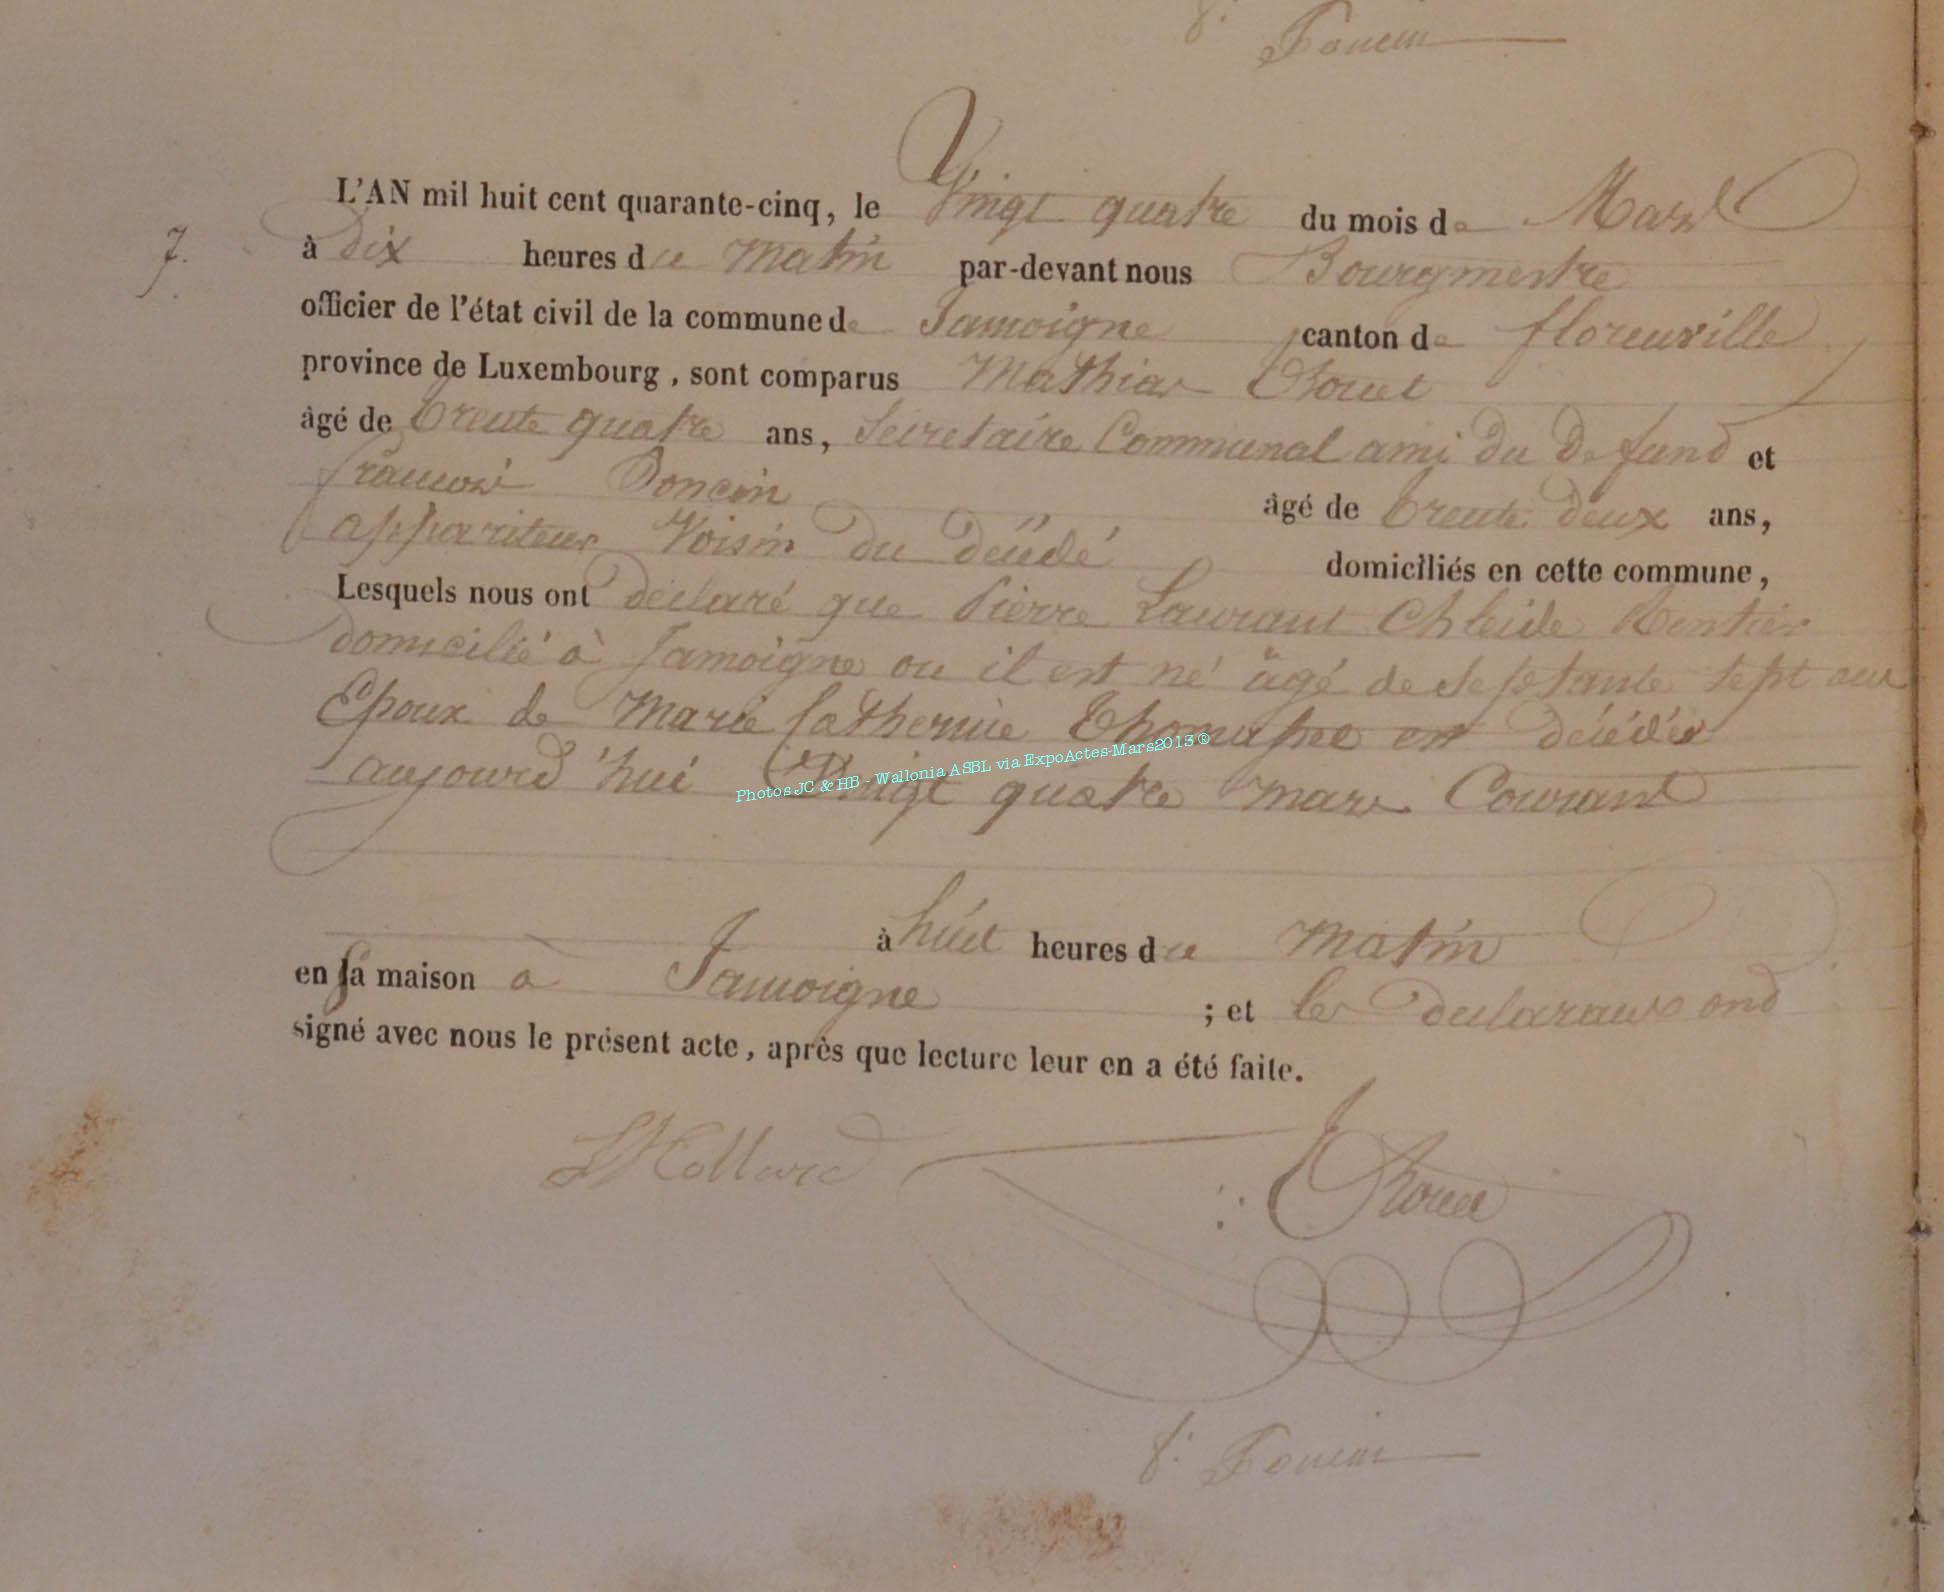 f. Foncin
L'AN mil huit cent quarante-cinq, le Vingt quatre du mois de Mars
7.
à dix heures du Matin par-devant nous Bourgmestre
officier de l'état civil de la commune de Jamoigne canton de florenville
province de Luxembourg, sont comparus Mathias Rouet
âgé de trente quatre ans, Secretaire Communal ami du Defund et
francois Foncin âgé de trente deux ans,
appariteur Voisin du décédé domiciliés en cette commune,
Lesquels nous ont déclaré que Pierre Laurant Chleide Rentier
domicilié à Jamoigne ou il est né âgé de septante sept ans
Epoux de Marie Catherine Thomassee est décédés
aujourd'hui Vingt quatre mars Courant
Photos JC & HB - Wallonia ASBL via ExpoActes-Mars2013®
à huit heures du Matin
en sa maison à Jamoigne ; et les declarans ond
signé avec nous le présent acte, après que lecture leur en a été faite.
Hollard
Rouet
f. Foncin